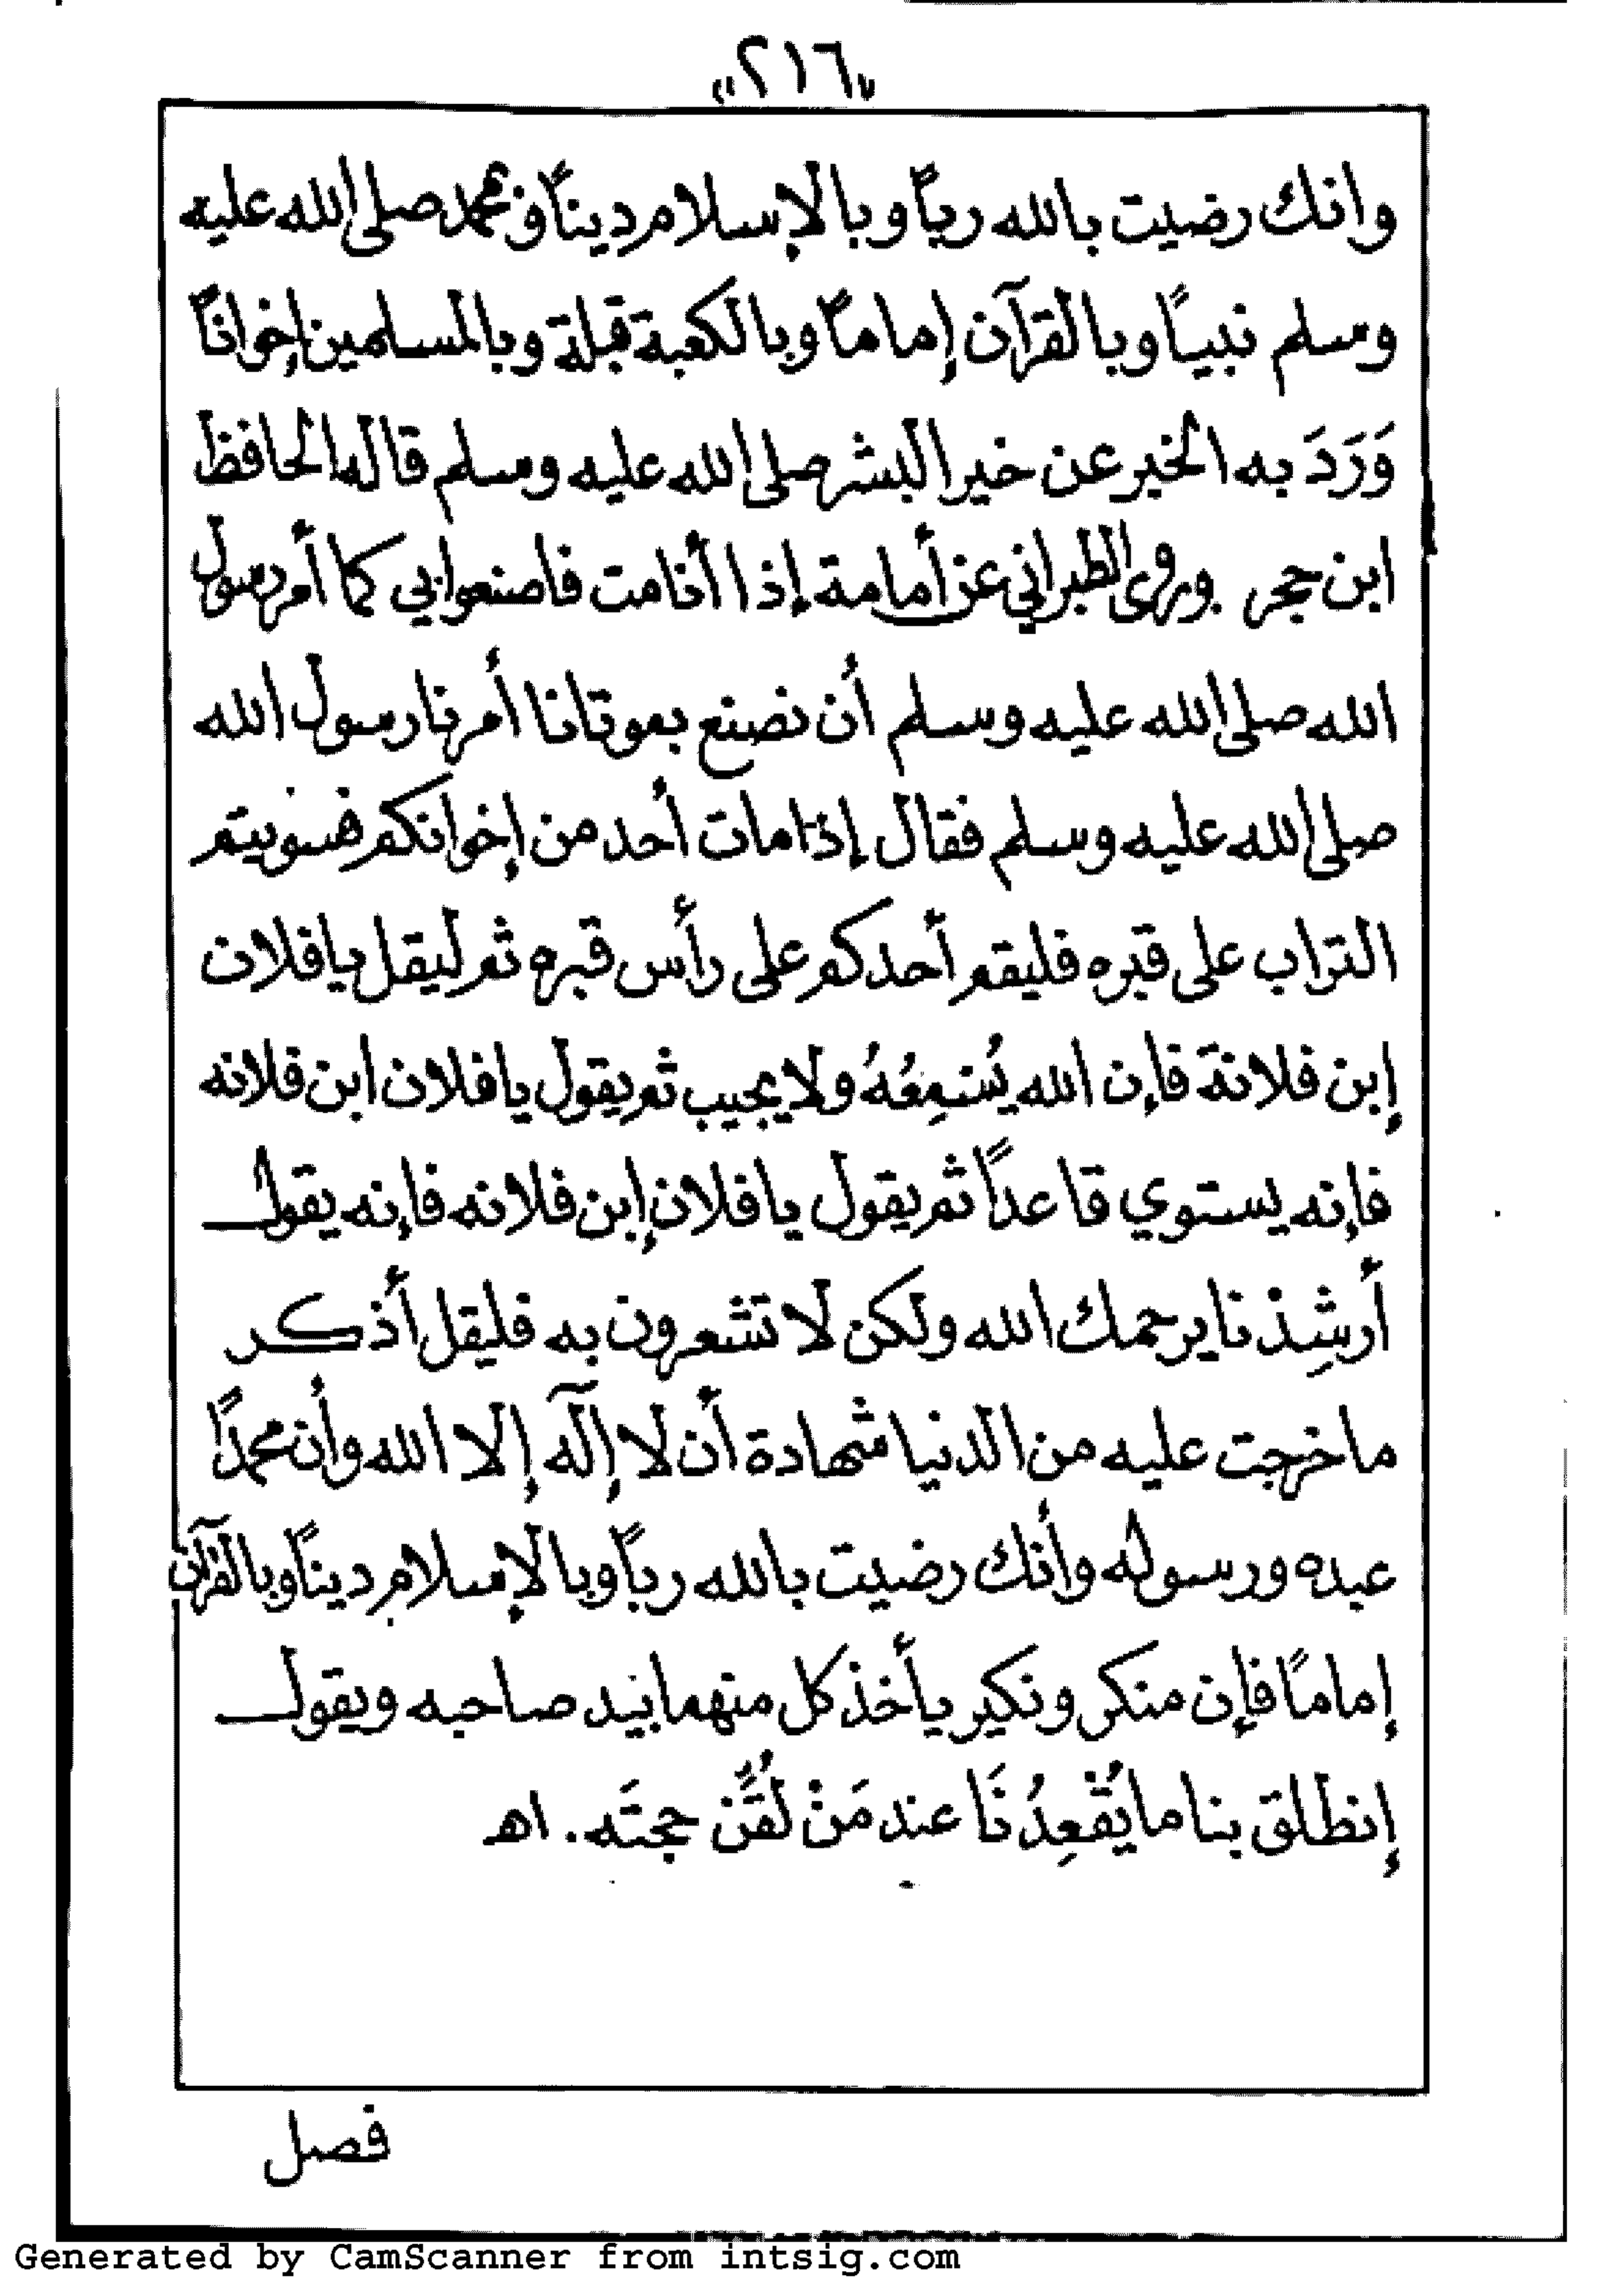 «٢١٦»
وانك رضيت بالله رباً وبالإسلام ديناً وبمحمد صلى الله عليه
وسلم نبياً وبالقرآن إماماً وبالكعبة قبلة وبالمسلمين إخواناً
وَرَدَ به الخبر عن خير البشر صلى الله عليه وسلم قاله الحافظ
ابن حجر وروى الطبراني عن أمامة إذا أنا مت فاصنعوا بي كما أمر رسول
الله صلى الله عليه وسلم أن نصنع بموتانا أمرنا رسول الله
صلى الله عليه وسلم فقال إذا مات أحد من إخوانكم فسويتم
التراب على قبره فليقم أحدكم على رأس قبره ثم ليقل يا فلان
إبن فلانة فإن الله يُسْمِعُهُ ولا يجيب ثم يقول يا فلان ابن فلانه
فإنه يستوي قاعداً ثم يقول يا فلان إبن فلانه فإنه يقول
أرشِدْنا يرحمك الله ولكن لا تشعرون به فليقل أذكر
ما خرجت عليه من الدنيا شهادة أن لا إلٓه إلا الله وأن محمداً
عبده ورسوله وأنك رضيت بالله رباً وبالإسلام ديناً وبالقرآن
إماماً فإن منكر ونكير يأخذ كل منهما بيد صاحبه ويقول
إنطلق بنا ما يُقْعِدُنَا عند مَنْ لُقِّنَ حجتَه . اهـ
فصل
Generated by CamScanner from intsig.com